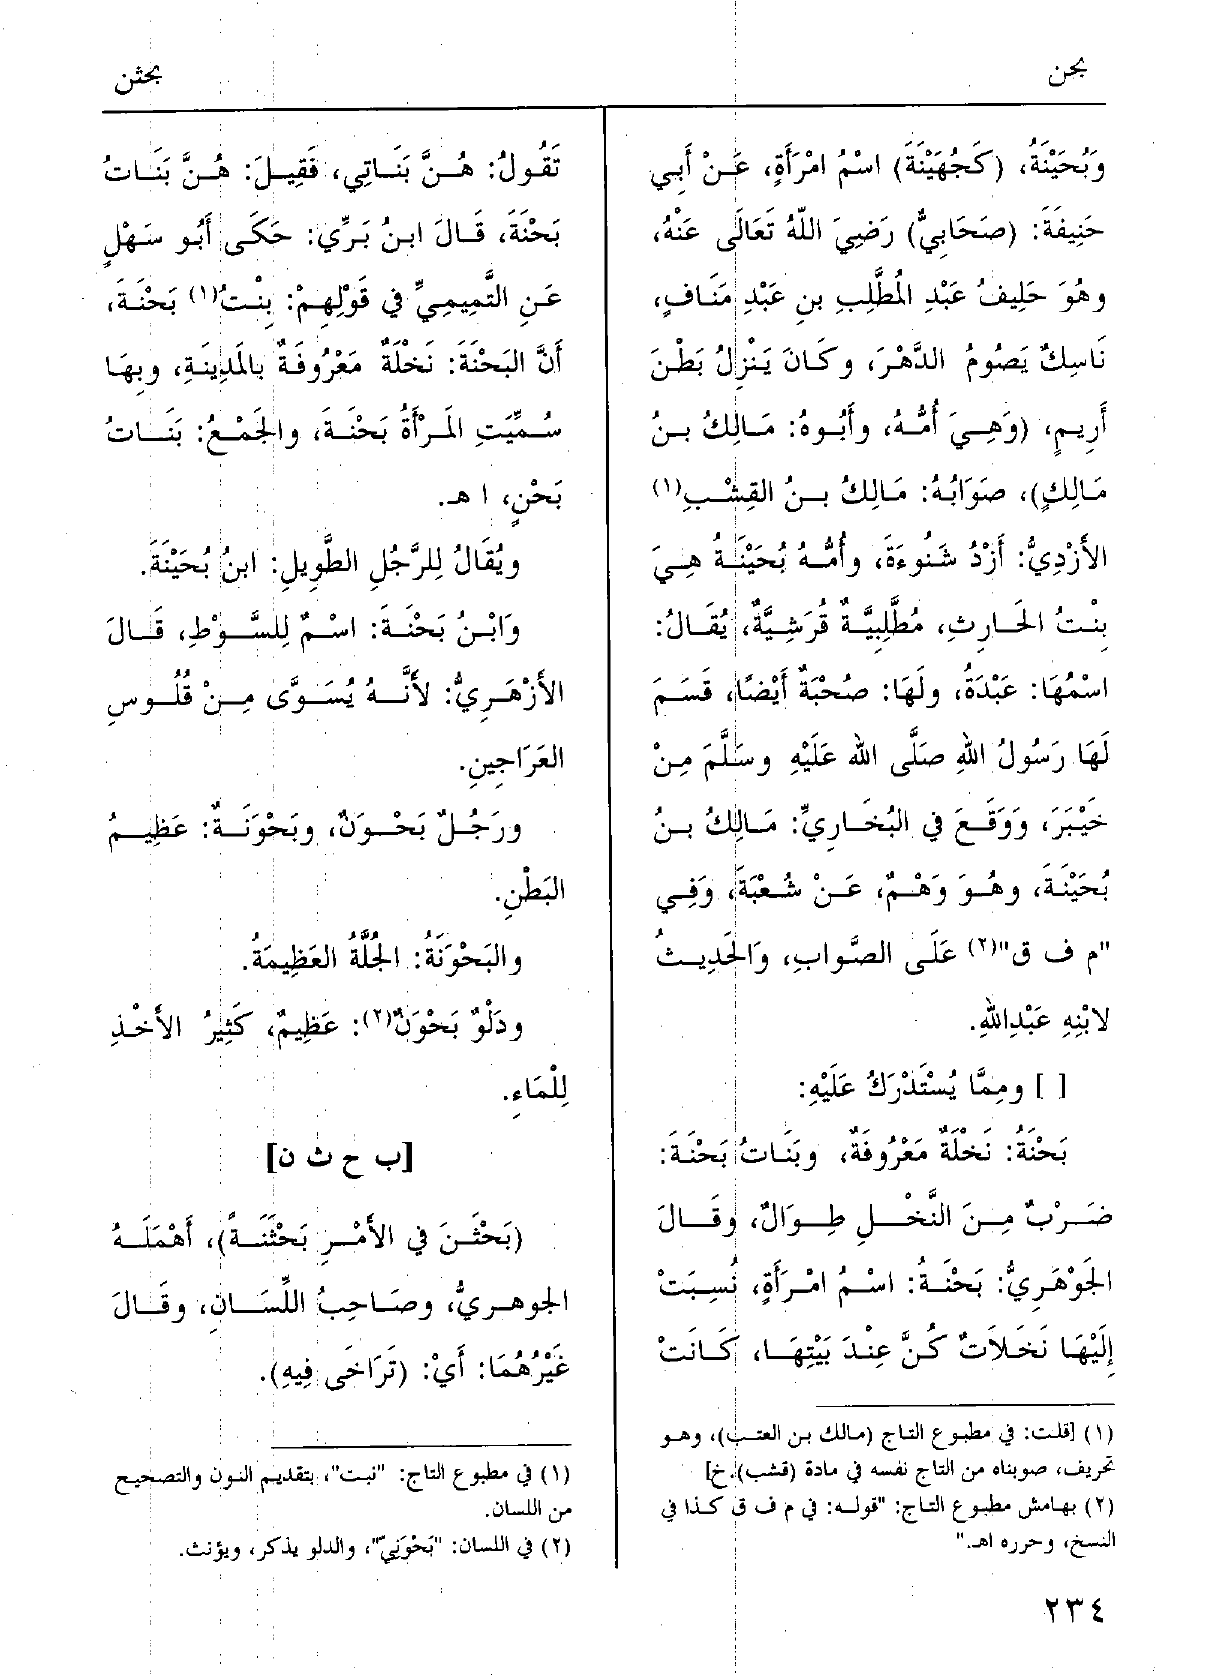 بحن
بحثن
وَبُحَيْنَةُ، (كَجُهَيْنَةَ) اسْمُ امْرَأَةٍ، عَنْ أَبِي
حَنِيفَةَ: (صَحَابِيٌّ) رَضِيَ اللَّهُ تَعَالَى عَنْهُ،
وهُوَ حَلِيفُ عَبْدِ المُطَّلِبِ بنِ عَبْدِ مَنَافٍ،
نَاسِكٌ يَصُومُ الدَّهْرَ، وكَانَ يَنْزِلُ بَطْنَ
أَرِيمٍ، (وَهِيَ أُمُّهُ، وأَبُوهُ: مَالِكُ بنُ
مَالِكٍ)، صَوَابُهُ: مَالِكُ بنُ القِشْبِ(١)
الأَزْدِيُّ: أَزْدُ شَنُوءَةَ، وأُمُّهُ بُحَيْنَةُ هِيَ
بِنْتُ الحَارِثِ، مُطَّلِبِيَّةٌ قُرَشِيَّةٌ، يُقَالُ:
اسْمُهَا: عَبْدَةُ، ولَهَا: صُحْبَةٌ أَيْضًا، قَسَمَ
لَهَا رَسُولُ اللهِ صَلَّى الله عَلَيْهِ وسَلَّمَ مِنْ
خَيْبَرَ، وَوَقَعَ فِي البُخَارِيِّ: مَالِكُ بنُ
بُحَيْنَةَ، وهُوَ وَهْمٌ، عَنْ شُعْبَةَ، وَفِي
"م ف ق"(٢) عَلَى الصَّوابِ، وَالحَدِيثُ
لابْنِهِ عَبْدِاللهِ.
[ ] ومِمَّا يُسْتَدْرَكُ عَلَيْهِ:
بَحْنَةُ: نَخْلَةٌ مَعْرُوفَةٌ، وبَنَاتُ بَحْنَةَ:
ضَرْبٌ مِنَ النَّخْلِ طِوَالٌ، وقَالَ
الجَوْهَرِيُّ: بَحْنَةُ: اسْمُ امْرَأَةٍ، نُسِبَتْ
إِلَيْهَا نَخَلَاتٌ كُنَّ عِنْدَ بَيْتِهَا، كَانَتْ
(١) [قلت: في مطبوع التاج (مالك بن العتب)، وهو
تحريف، صوبناه من التاج نفسه في مادة (قشب).خ]
(٢) بهامش مطبوع التاج: "قوله: في م ف ق كذا في
النسخ، وحرره اهـ."
تَقُولُ: هُنَّ بَنَاتِي، فَقِيلَ: هُنَّ بَنَاتُ
بَحْنَةَ، قَالَ ابنُ بَرِّي: حَكَى أَبُو سَهْلٍ
عَنِ التَّمِيمِيِّ فِي قَوْلِهِمْ: بِنْتُ(١) بَحْنَةَ،
أَنَّ البَحْنَةَ: نَخْلَةٌ مَعْرُوفَةٌ بالمَدِينَةِ، وبِهَا
سُمِّيَتِ المَرْأَةُ بَحْنَةَ، والجَمْعُ: بَنَاتُ
بَحْنٍ، ا هـ.
ويُقَالُ لِلرَّجُلِ الطَّوِيلِ: ابنُ بُحَيْنَةَ.
وَابْنُ بَحْنَةَ: اسْمٌ لِلسَّوْطِ، قَالَ
الأَزْهَرِيُّ: لأَنَّهُ يُسَوَّى مِنْ قُلُوسِ
العَرَاجِينِ.
ورَجُلٌ بَحْوَنٌ، وبَحْوَنَةٌ: عَظِيمُ
البَطْنِ.
والبَحْوَنَةُ: الجُلَّةُ العَظِيمَةُ.
ودَلْوٌ بَحْوَنٌ(٢): عَظِيمٌ، كَثِيرُ الأَخْذِ
لِلْمَاءِ.
[ب ح ث ن]
(بَحْثَنَ فِي الأَمْرِ بَحْثَنَةً)، أَهْمَلَهُ
الجوهريُّ، وصَاحِبُ اللِّسَانِ، وقَالَ
غَيْرُهُمَا: أَيْ: (تَرَاخَى فِيهِ).
(١) في مطبوع التاج: "نبت"، بتقديم النون والتصحيح
من اللسان.
(٢) في اللسان: "بَحْوَنِيّ"، والدلو يذكر، ويؤنث.
٢٣٤